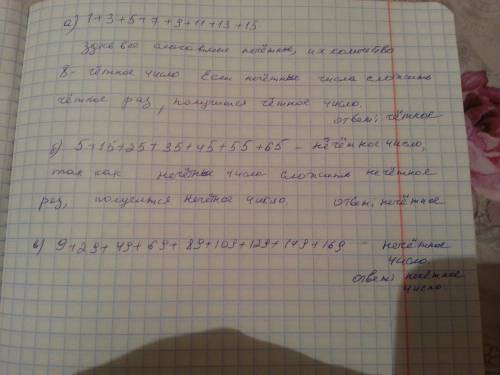 а) 1+3+5+7+9+11+13+15
здесь все слагаемые нечётные, их количество
8 - чётное число. Если нечётные числа сложить
чётное раз, получится чётное число.
ответ: чётное
б) 5+15+25+35+45+55+65 - нечётное число,
так как нечётные числа сложить нечётное
раз, получится нечётное число. ответ: нечётное
в) 9+29+49+69+89+109+129+149+169 - нечётное
число.
ответ: нечётное
число